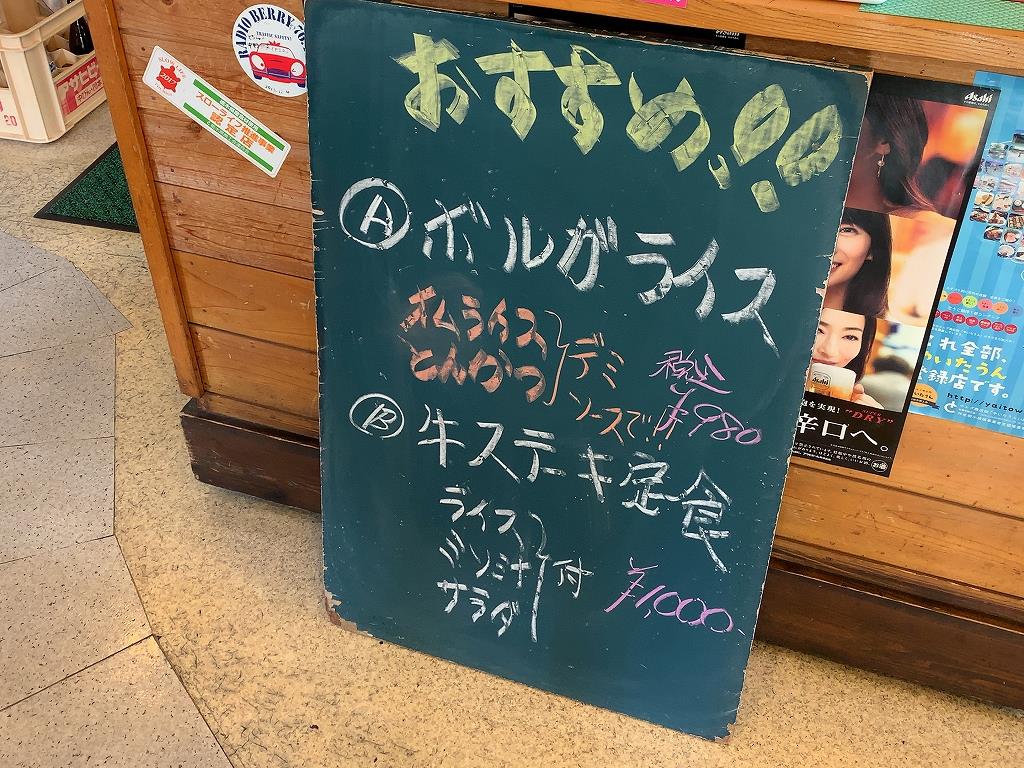 おすすめ!!
Ⓐ ボルガライス
オムライス
とんかつ
デミ
ソースで!!
税込
¥980
Ⓑ 牛ステーキ定食
ライス
ミソミナ
サラダ
付
¥1,000-
RADIO BERRY 76
スローライフ推進事業
認定店
アサヒビ
20
Asahi
"DRY"
辛口へ。
お酒
れ全部、
録店です。